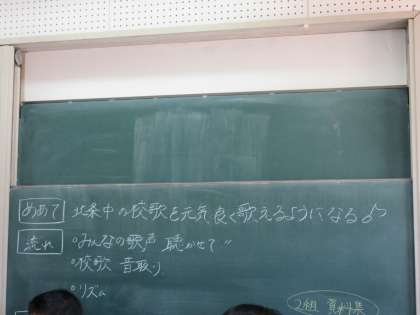 めあて 北条中の校歌を元気良く歌えるようになる♪
流れ 。みんなの歌声 聴かせて〃
。校歌 音取り
。リズム
2組 資料集